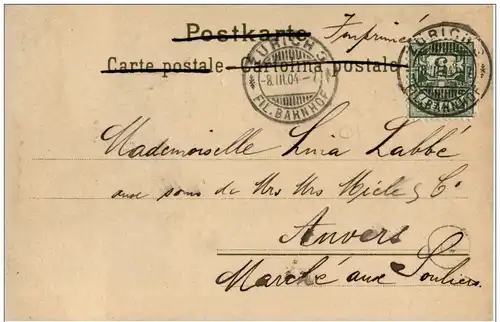 Postkarte Imprimé
Carte postale - Cartolina postale
ZÜRICH 3
-8.III.04-7
FIL. BAHNHOF
ZÜRICH 3
5
FIL. BAHNHOF
Mademoiselle Lina Labbé
aux soins de Mrs Mrs Miele & Co.
Anvers
Marché aux Souliers